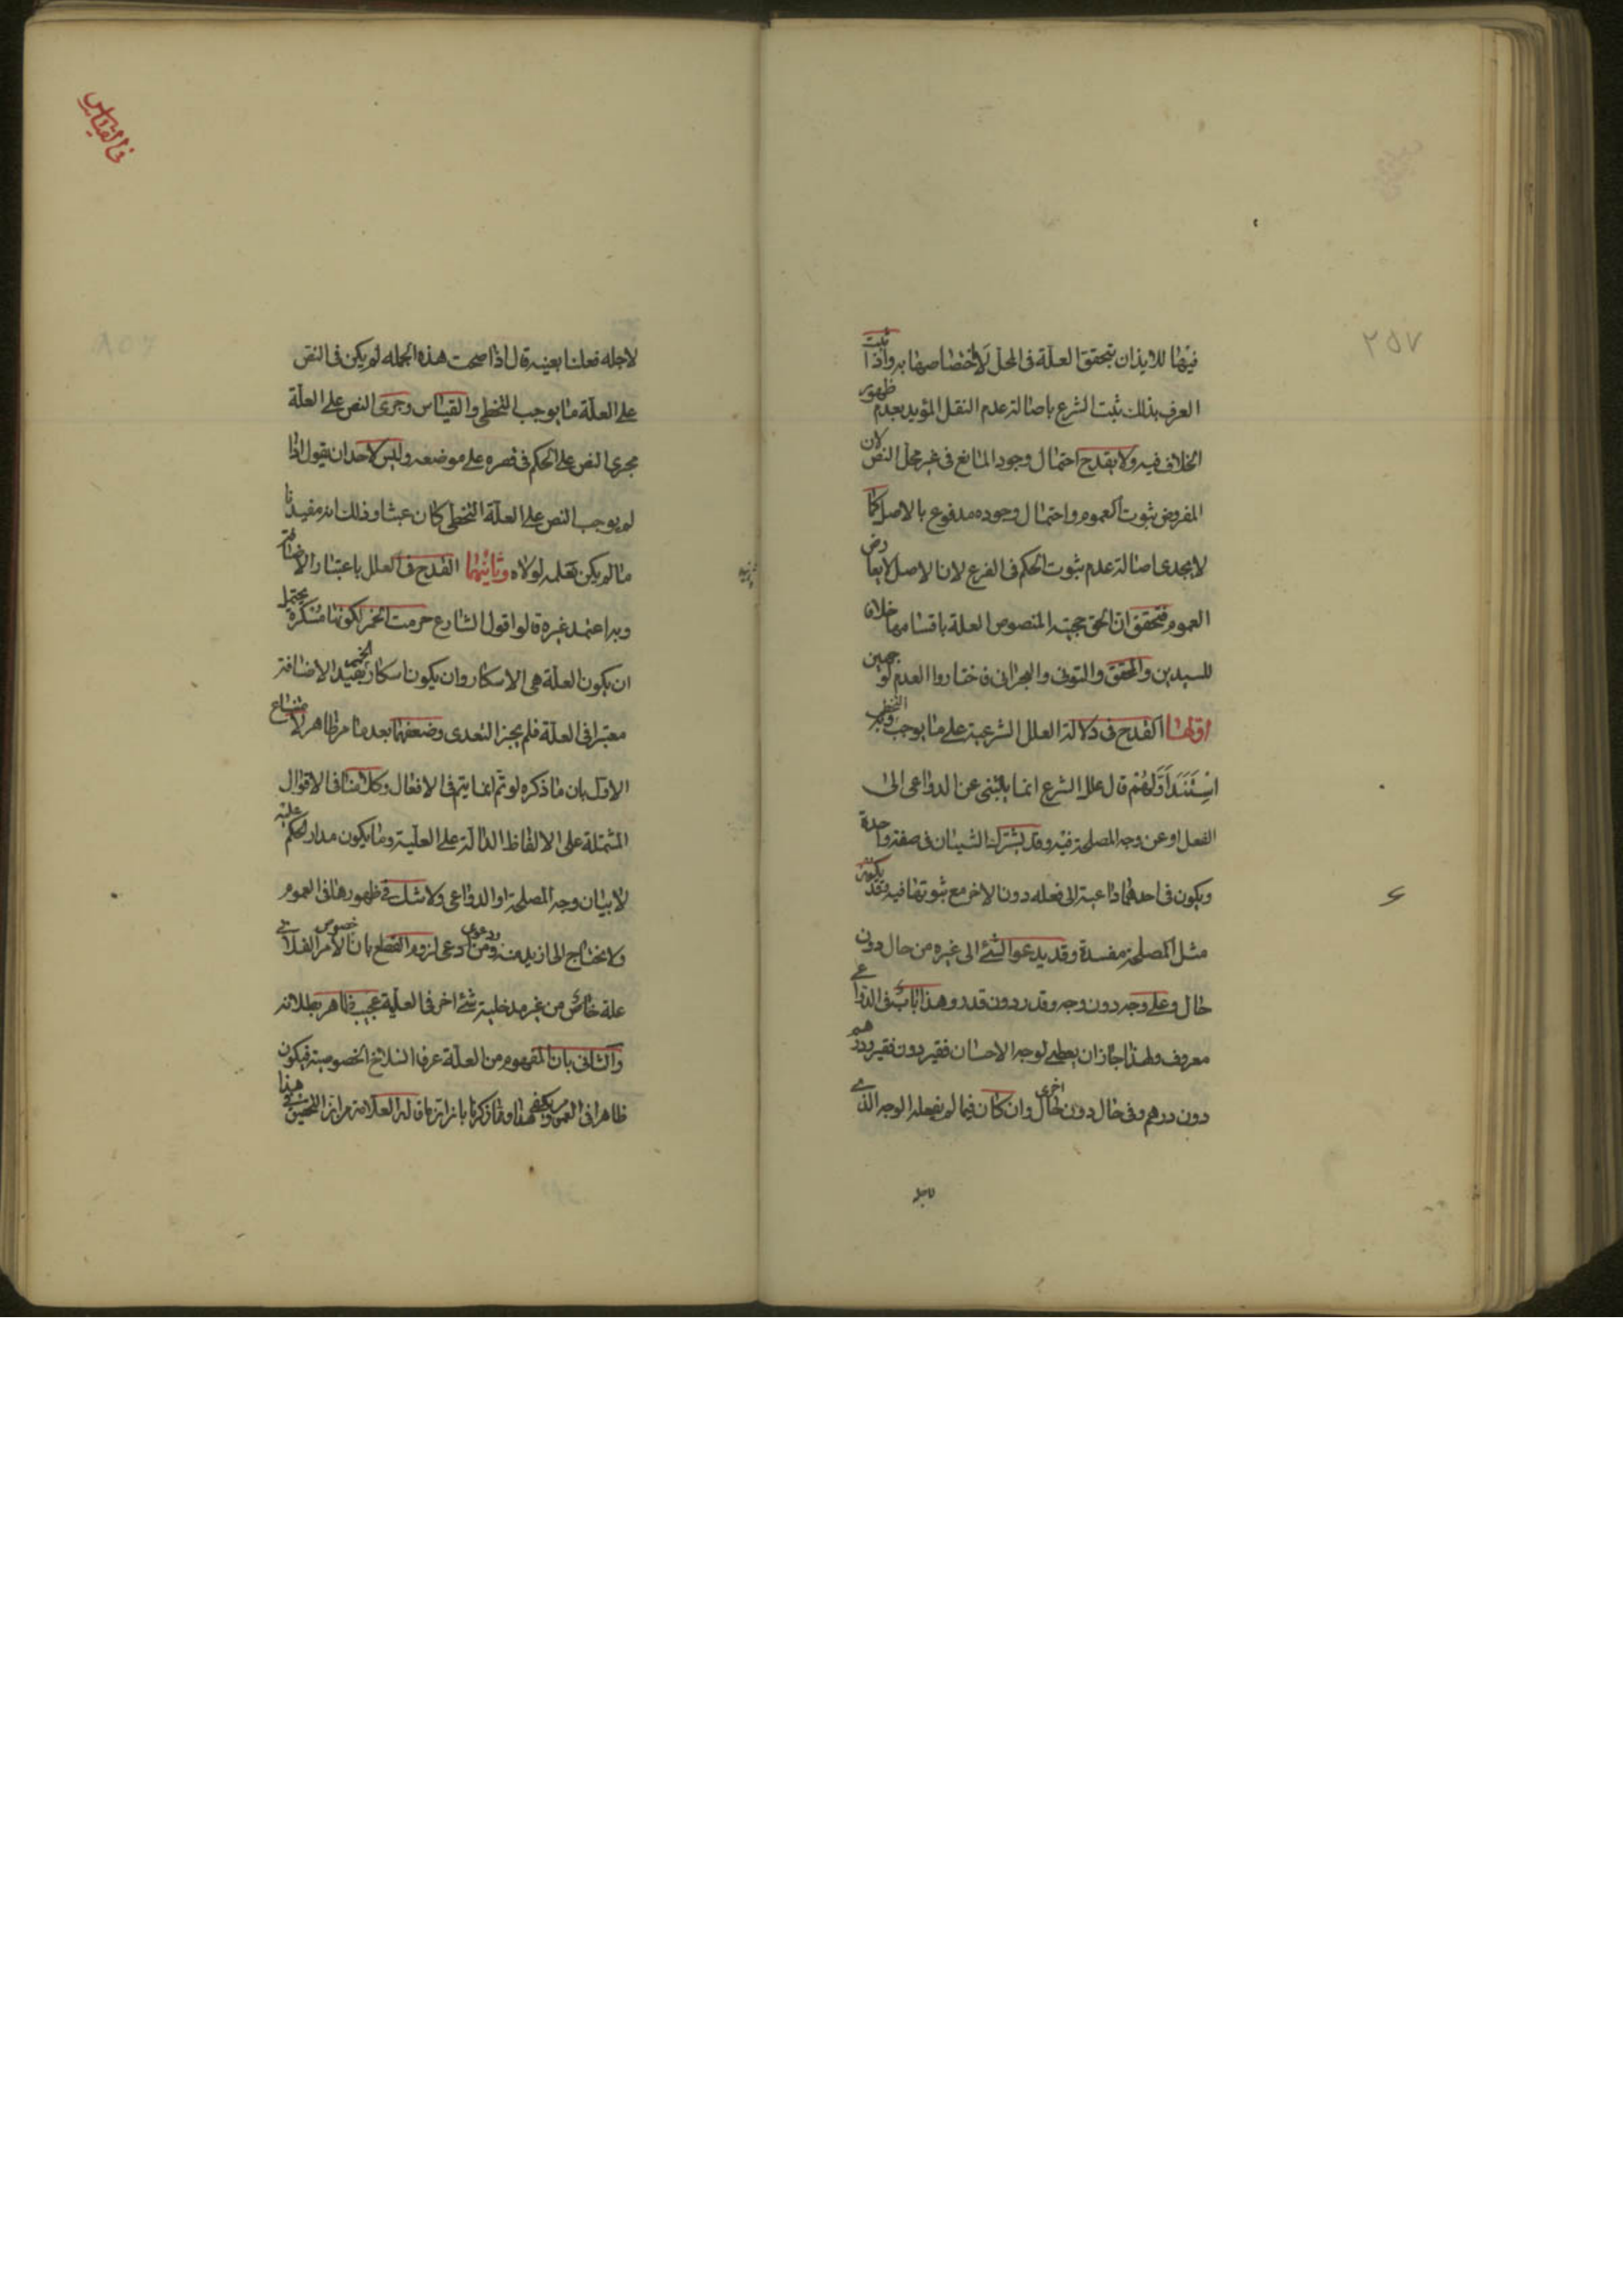 ٢٥٧
فيها للايذان بتحقق العلّة فى المحل لا لاختصاصها به واذا ثبت
العرف بذلك ثبت الشرع باصالة عدم النقل المؤيد بعدم ظهور
الخلاف فيه ولا يقدح احتمال وجود المانع فى غير محل النص لان
المفروض ثبوت العموم واحتمال وجوده مدفوع بالاصل كما
لا يجدى اصالة عدم ثبوت الحكم فى الفرع لان الاصل لا يعارض
العموم فتحقق ان الحق حجية المنصوص العلة باقسامها خلافا
للسيدين والمحقق والتونى والبحرانى فاختاروا العدم لوجهين
اوّلها القدح فى دلالة العلل الشرعية على ما يوجب التخطى وبه
اِسْتَنَدَ اَوَّلُهُمْ قال علل الشرع انما ينبئى عن الدواعى الى
الفعل او عن وجه المصلحة فيه وقد يشترك الشيئان فى صفة واحدة
ويكون فى احدهما داعية الى فعله دون الاخر مع ثبوتها فيه وقد يكون
مثل المصلحة مفسدة وقد يدعو الشئ الى غيره من حال دون
حال وعلى وجه دون وجه وقدر دون قدر وهذا باب فى الدواعى
معروف ولهذا جاز ان يعطى لوجه الاحسان فقير دون فقير ودرهم
دون درهم وفى حال دون حال اخرى وان كان فيما لم نفعله الوجه الذى
فى القياس
لاجله فعلنا بعينه قال اذا صحت هذه الجمله لم يكن فى النص
على العلّة ما يوجب التخطى والقياس وجرى النص على العلّة
مجرى النص على الحكم فى قصره على موضعه وليس لاحد ان يقول اذا
لم يوجب النص على العلّة التخطى كان عبثا وذلك انه مفيدنا
ما لم يكن نعلمه لولاه وثانيهما القدح فى العلل باعتبار الاضافة
وبه اعتمد غيره قالوا قول الشارع حرمت الخمر لكونها مسكرة يحتمل
ان يكون العلّة هى الاسكار وان يكون اسكار الخمر بقيد الاضافة
معتبرا فى العلّة فلم يجز التعدى وضعفهما بعد ما مر ظاهر لاندفاع
الاول بان ما ذكره لو تم انما يتم فى الافعال وكلامنا فى الاقوال
المشتملة على الالفاظ الدالة على العلّية وما يكون مدار الحكم عليه
لا بيان وجه المصلحة او الدواعى ولا شك فى ظهورها فى العموم
ولا نحتاج الى ازيد منه ودعوى من ادعى لزوم القطع بان خصوص الامر الفلانى
علة خاص من غير مدخلية شئ اخر فى العلّية عجيب ظاهر بطلانه
والثانى بان المفهوم من العلّة عرفا انسلاخ الخصوصية فيكون
ظاهرا فى العموم ويكفى هذا وما ذكرنا بانزائه ما قاله العلامة من ان التحقيق فى هذا